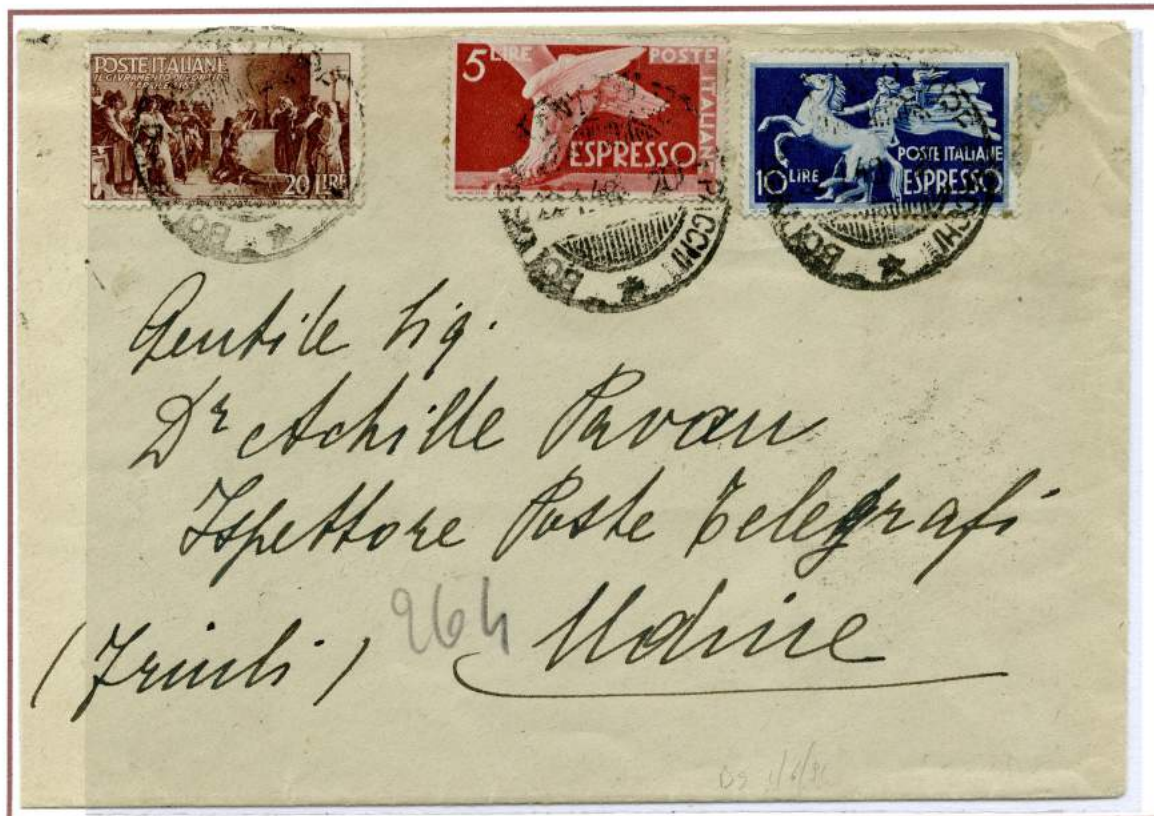 POSTE ITALIANE
IL GIVRAMENTO DI PONTIDA
7 APRILE
20 LIRE
5 LIRE POSTE ITALIANE
ESPRESSO
POSTE ITALIANE
10 LIRE ESPRESSO
20
Gentile Sig.
Dr Achille Pavan
Ispettore Poste Telegrafi
264 Udine
(Friuli)